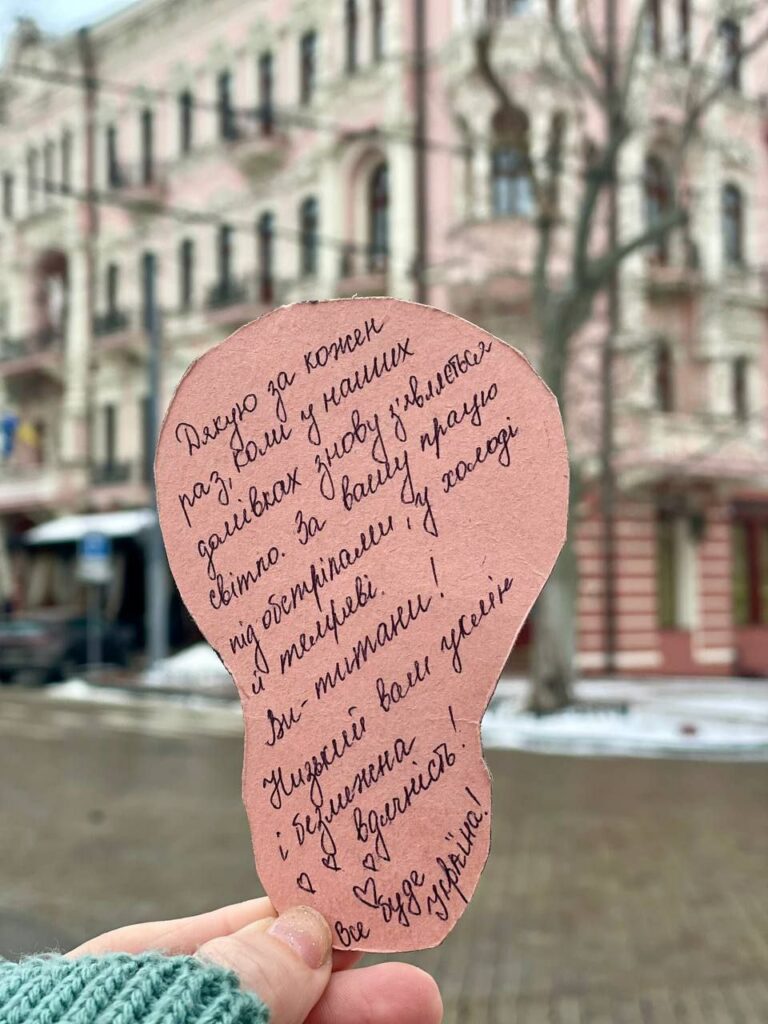 Дякую за кожен
раз, коли у наших
домівках знову з'являється
світло. За вашу працю
під обстрілами, у холоді
й темряві.
Ви - титани!
Низький вам уклін
і безмежна
вдячність!
все буде
Україна!